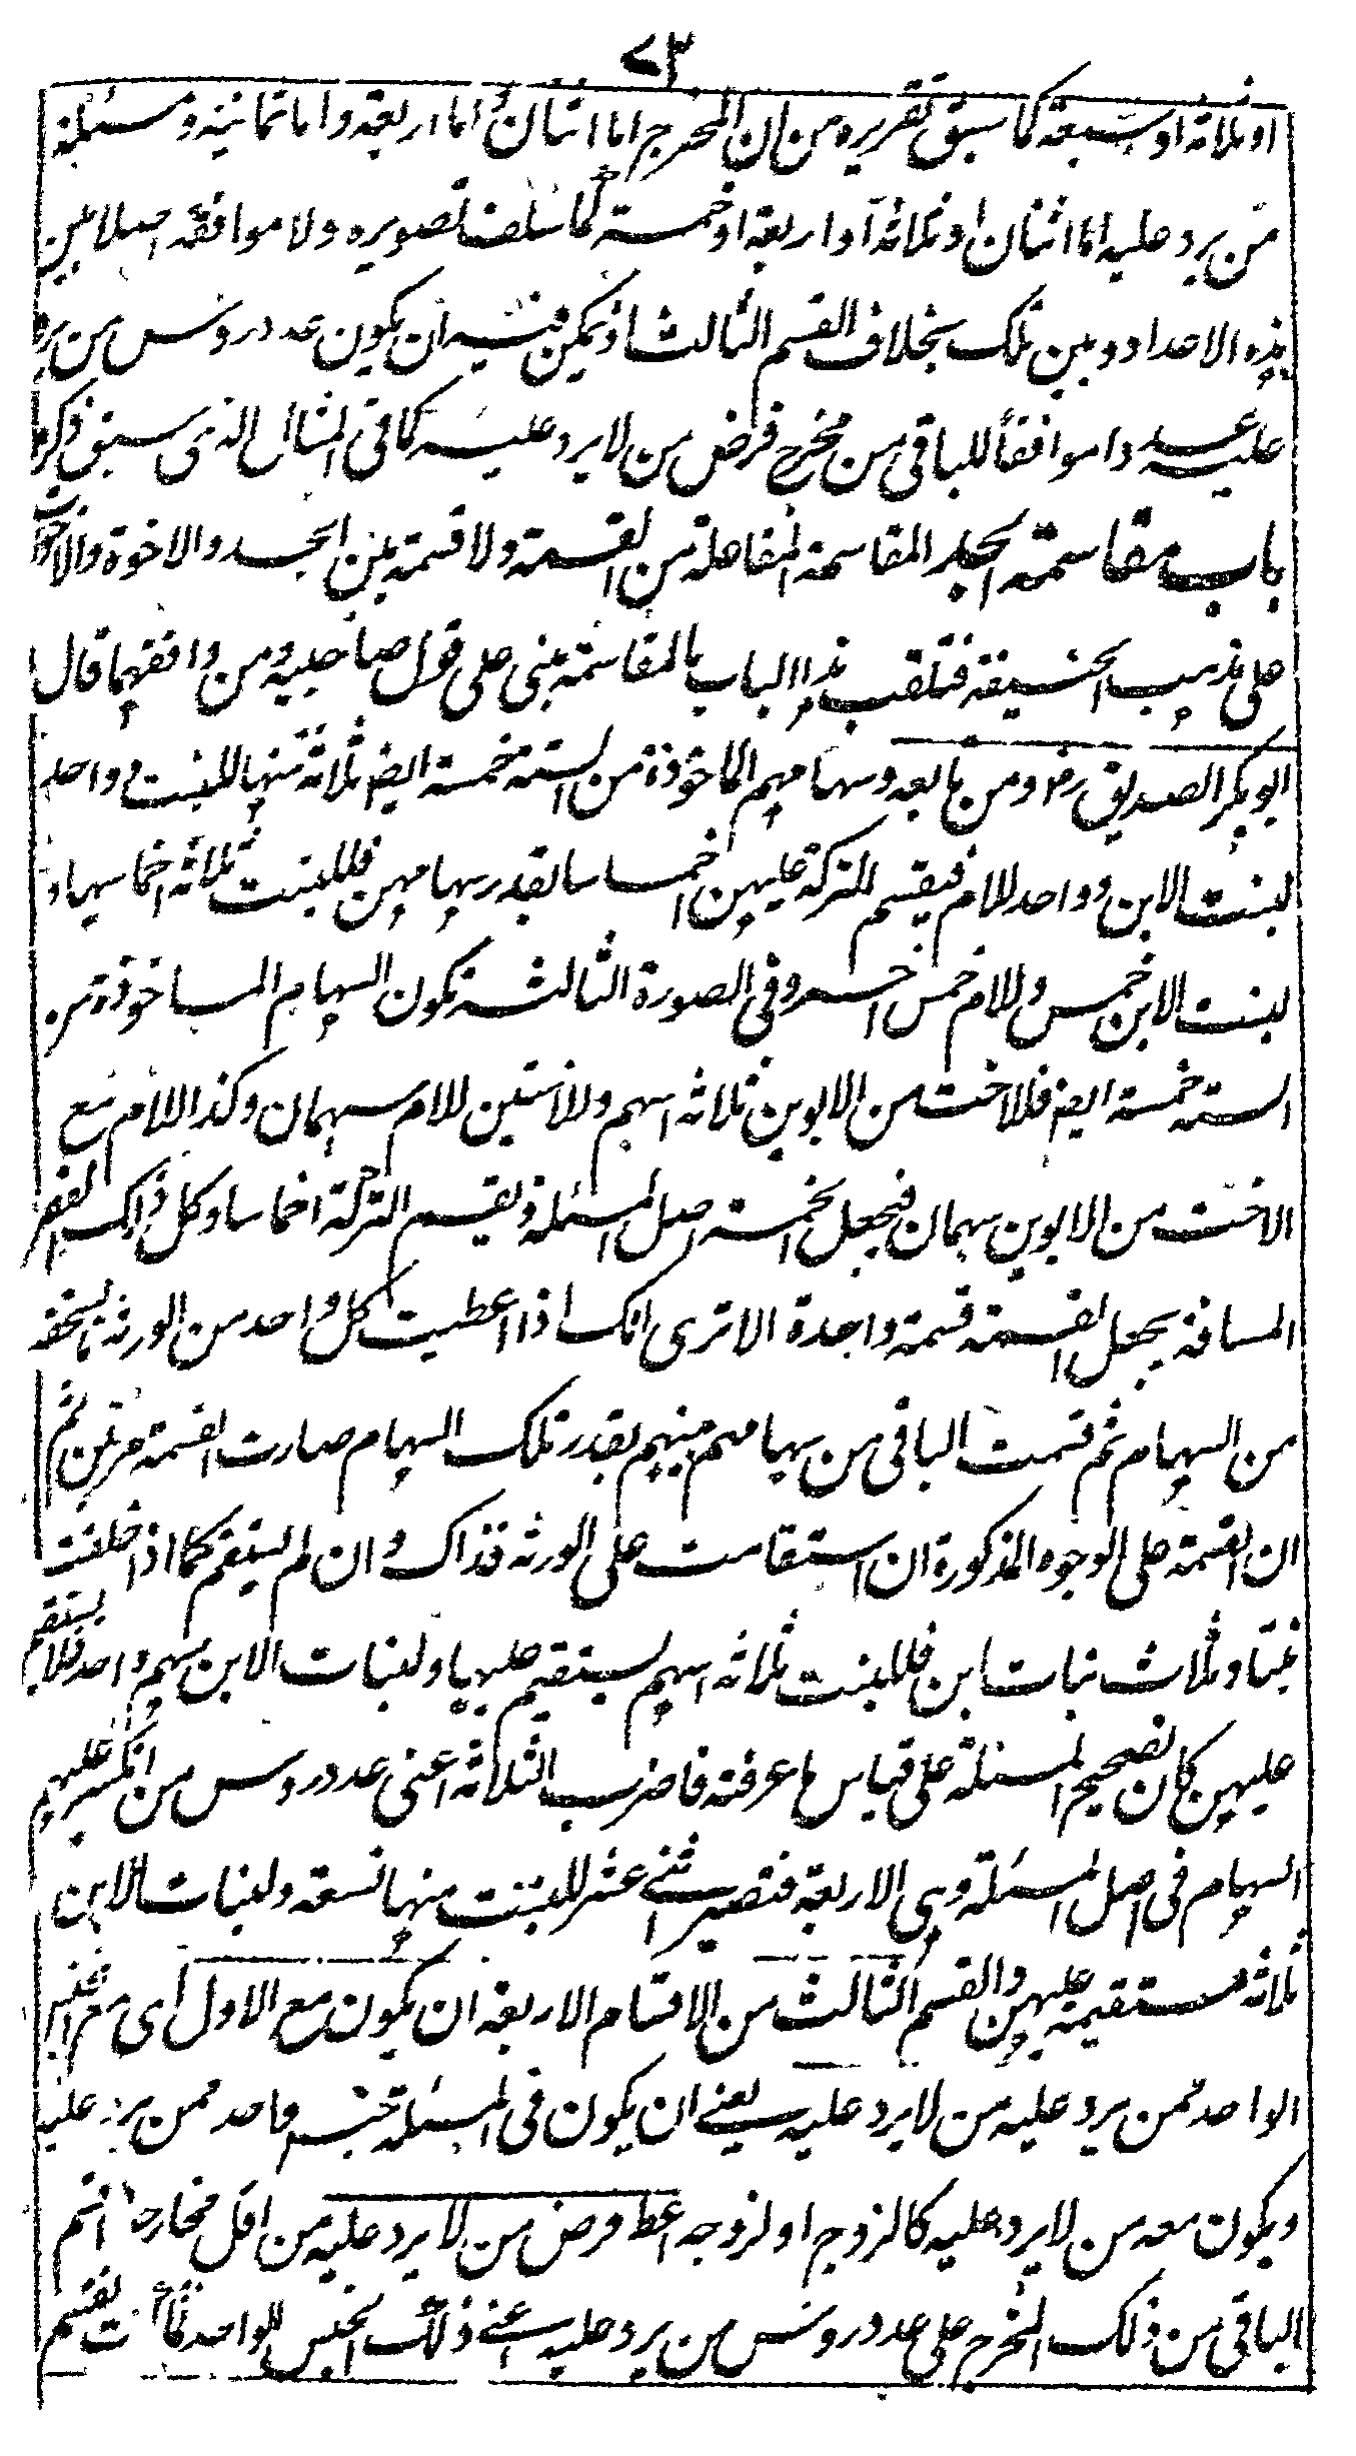 ٧٣
او ثلاثة او سبعة كما سبق تقريره من ان المخرج اما اثنان اما اربعة واما ثمانية ومسئلة
من يرد عليه اما اثنان او ثلاثة او اربعة او خمسة كما سلف تصويره ولا موافقة اصلا بين
هذه الاعداد وبين تلك بخلاف القسم الثالث اذ يمكن فيه ان يكون عدد روس من يرد
عليه عددا موافقا للباقي من مخرج فرض من لا يرد عليه كما في المثال الذي سبق ذكره
باب مقاسمة الجد المقاسمة المفاعلة من القسمة ولا قسمة بين الجد والاخوة والاخوات
على مذهب الحنيفة فتلقب هذا الباب بالمقاسمة مبنى على قول صاحبيه ومن وافقهما قال
ابو بكر الصديق رض ومن تابعه وسهامهم الماخوذة من الستة خمسة ايض ثلاثة منها للبنت وواحد
لبنت الابن وواحد للام فيقسم التركة عليهن اخماسا بقدر سهامهن فللبنت ثلاثة اخماسها و
لبنت الابن خمس وللام خمس اخر وفي الصورة الثالثة تكون السهام الماخوذة من
الستة خمسة ايض فللاخت من الابوين ثلاثة اسهم وللاختين للام سهمان وكذا للام مع
الاخت من الابوين سهمان فيجعل الخمسة اصل المسئلة ويقسم التركة اخماسا وكل ذلك لقصر
المسافة بجعل القسمة قسمة واحدة الا ترى انك اذا اعطيت كل واحد من الورثة ما يستحقه
من السهام ثم قسمت الباقي من سهامهم بينهم بقدر تلك السهام صارت القسمة مرتين ثم
ان القسمة على الوجوه المذكورة ان استقامت على الورثة فذاك وان لم يستقم كما اذا خلفت
بنتا وثلاث بنات ابن فللبنت ثلاثة اسهم يستقيم عليها ولبنات الابن سهم واحد فلا يستقيم
عليهن كان تصحيح المسئلة على قياس ما عرفته فاضرب الثلاثة اعنى عدد روس من انكسر عليهم
السهام في اصل المسئلة وهي الاربعة فتصير اثنى عشر للبنت منها تسعة ولبنات الابن
ثلاثة مستقيمة عليهن والقسم الثالث من الاقسام الاربعة ان يكون مع الاول اي مع الجنس
الواحد ممن يرد عليه من لا يرد عليه يعنى ان يكون في المسئلة جنس واحد ممن يرد عليه
ويكون معه من لا يرد عليه كالزوج او الزوجة اعط فرض من لا يرد عليه من اقل مخارجه اقسم
الباقي من ذلك المخرج على عدد روس من يرد عليه اعنى ذلك الجنس الواحد كما تقسم